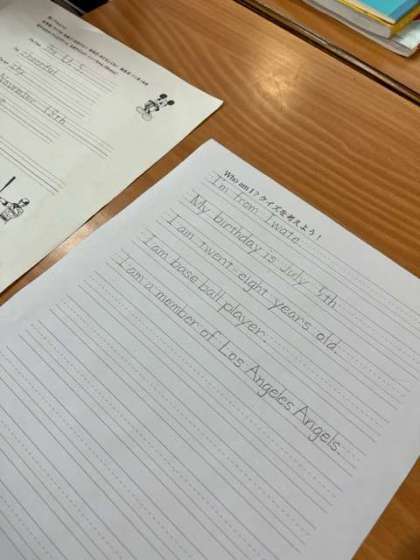 Who am I? クイズを考えよう！
I'm from Iwate.
My birthday is July 5th.
I am twent-eight years old.
I am base ball player.
I am a member of Los Angeles Angels.
November 18th